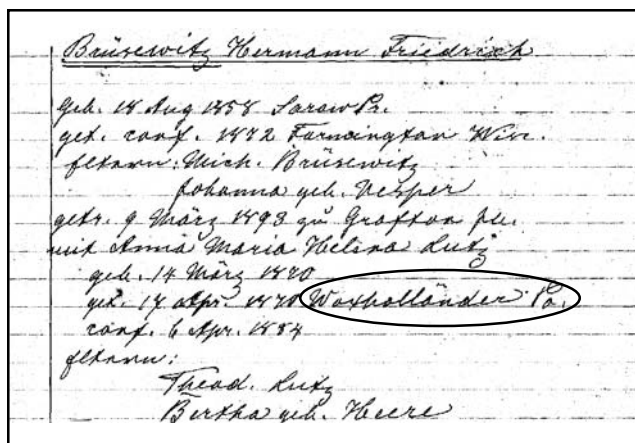 Brüsewitz Hermann Friedrich
geb. 18 Aug 1858 Sarow Pr.
get. conf. 1872 Farmington Wisc.
Eltern: Mich. Brüsewitz
Johanna geb. Vesper
getr. 9 März 1893 zu Grafton
mit Anna Maria Helena Lutz
geb. 14 März 1870
get. 17 Apr. 1870 Woxholländer Co.
conf. 6 Apr. 1884
Eltern:
Theod. Lutz
Bertha geb. Heere